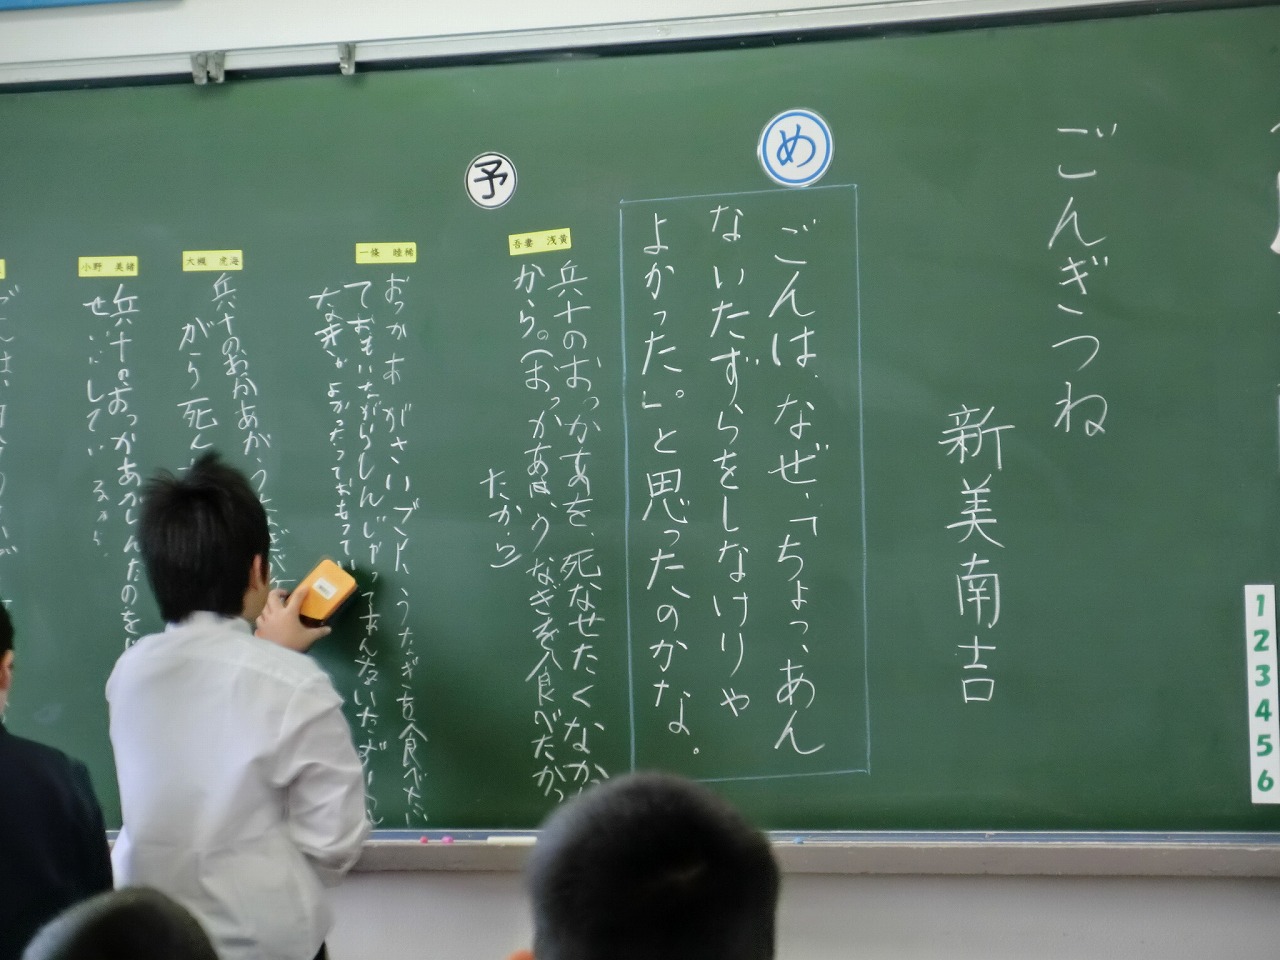 ごんぎつね
新美南吉
め
ごんは、なぜ、「ちょっ、あん
ないたずらをしなけりゃ
よかった。」と思ったのかな。
予
吾妻 浅黄
兵十のおっかあを、死なせたくなか
から。(おっかあは、うなぎを食べたかっ
たから)
一條 睦稀
おっかあがさいごに、うなぎを食べた
ておもいながらしんじゃってあんないたずら
大槻 虎海
兵十のおかあが
がら死ん
小野 美緒
兵十のおっかあがしんだのを
せいにしてい
るから。
1
2
3
4
5
6